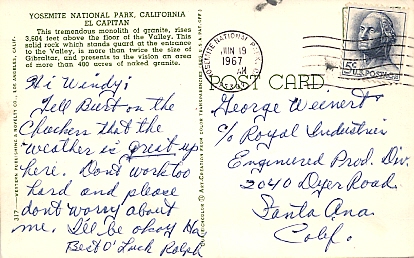 YOSEMITE NATIONAL PARK, CALIFORNIA
EL CAPITAN
This tremendous monolith of granite, rises
3,604 feet above the floor of the Valley. This
solid rock which stands guard at the entrance
to the Valley, is more than twice the size of
Gibraltar, and presents to the vision an area
of more than 400 acres of naked granite.
Hi Wendy;
Tell Burt on the
Chuckers that the
weather is great up
here. Dont work too
hard and please
dont worry about
me. I'll be okay Ha
Best O' Luck Ralph
317
YOSEMITE NATIONAL
JUN 19
AM
1967
5¢ U.S. POSTAGE
POST CARD
George Weinert
c/o Royal Industries
Engineered Prod. Div.
2040 Dyer Road.
Santa Ana
Calif.